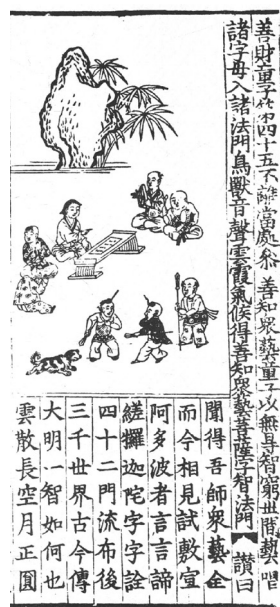 善財童子第四十五不離當處參 善知眾藝童子以無師智窮世間藝唱
諸字母入諸法門鳥獸音聲雲霞氣候得善知眾藝菩薩字智法門 讚曰
聞得吾師眾藝全
而今相見試敷宣
阿多波者言言諦
縒囉迦陀字字詮
四十二門流布後
三千世界古今傳
大明一智如何也
雲散長空月正圓